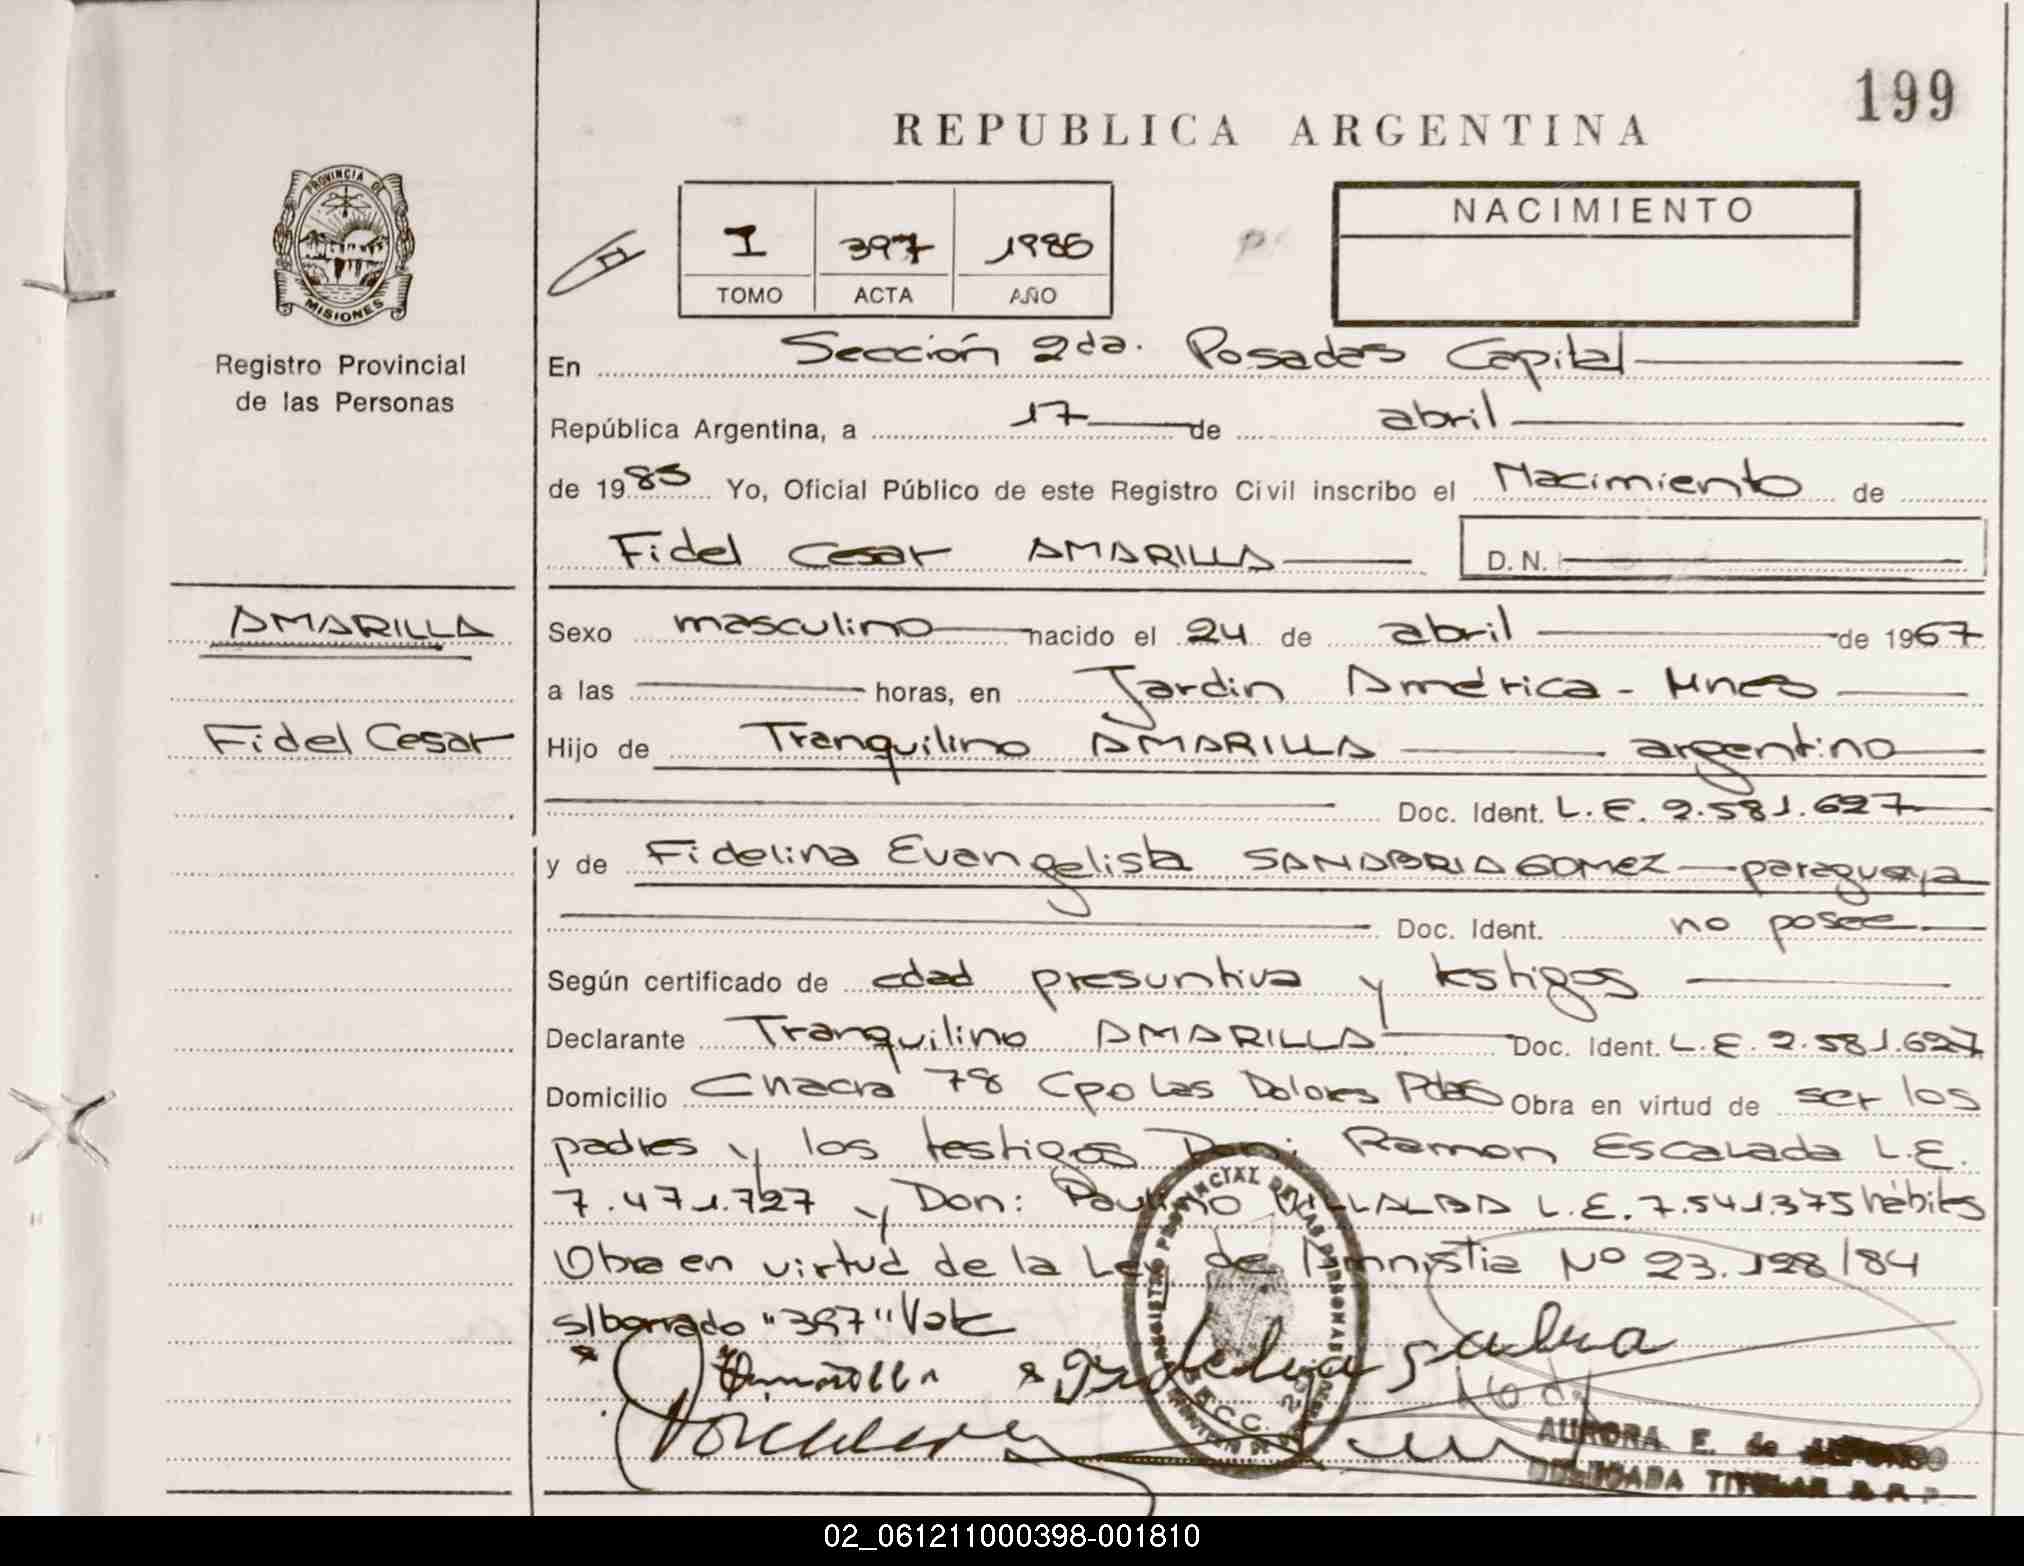 199
REPUBLICA ARGENTINA
PROVINCIA DE
MISIONES
Registro Provincial
de las Personas
I 397 1985
TOMO ACTA AÑO
NACIMIENTO
En Sección 2da. Posadas Capital
República Argentina, a 17 de abril
de 1985 Yo, Oficial Público de este Registro Civil inscribo el Nacimiento de
Fidel Cesar AMARILLA D. N. I.
AMARILLA
Fidel Cesar
Sexo masculino nacido el 24 de abril de 1967
a las horas, en Jardin América - Mnes
Hijo de Tranquilino AMARILLA argentino
Doc. Ident. L.E. 2.581.627
y de Fidelina Evangelista SANABRIA GOMEZ paraguaya
Doc. Ident. no posee
Según certificado de edad presuntiva y testigos
Declarante Tranquilino AMARILLA Doc. Ident. L.E. 2.581.627
Domicilio Chacra 78 Cpo Las Dolores Pdas Obra en virtud de ser los
padres y los testigos Don: Ramon Escalada L.E.
7.471.727 y Don: Paulino VILLALBA L.E. 7.541.375 hábiles
Obra en virtud de la Ley de Amnistia Nº 23.128/84
s/borrado "397" Vale
AURORA E. de
DELEGADA TITULAR
02_061211000398-001810